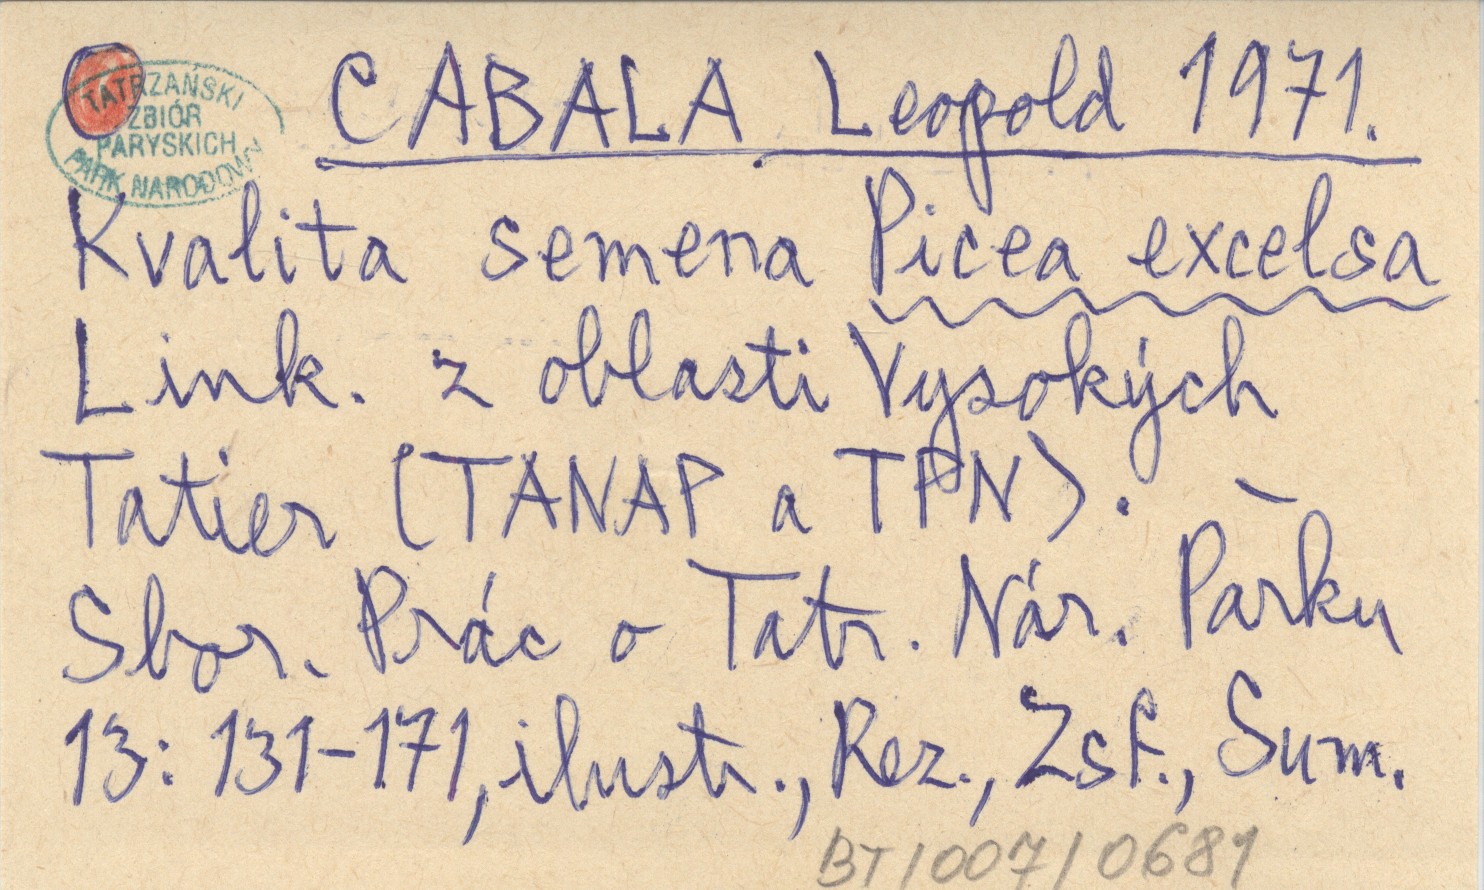 TATRZAŃSKI
ZBIÓR
PARYSKICH
PARK NARODOWY
CABALA Leopold 1971.
Kvalita semena Picea excelsa
Link. z oblasti Vysokých
Tatier (TANAP a TPN). –
Sbor. Prác o Tatr. Nár. Parku
13: 131–171, ilustr., Rez., Zsf., Sum.
BT/007/0681